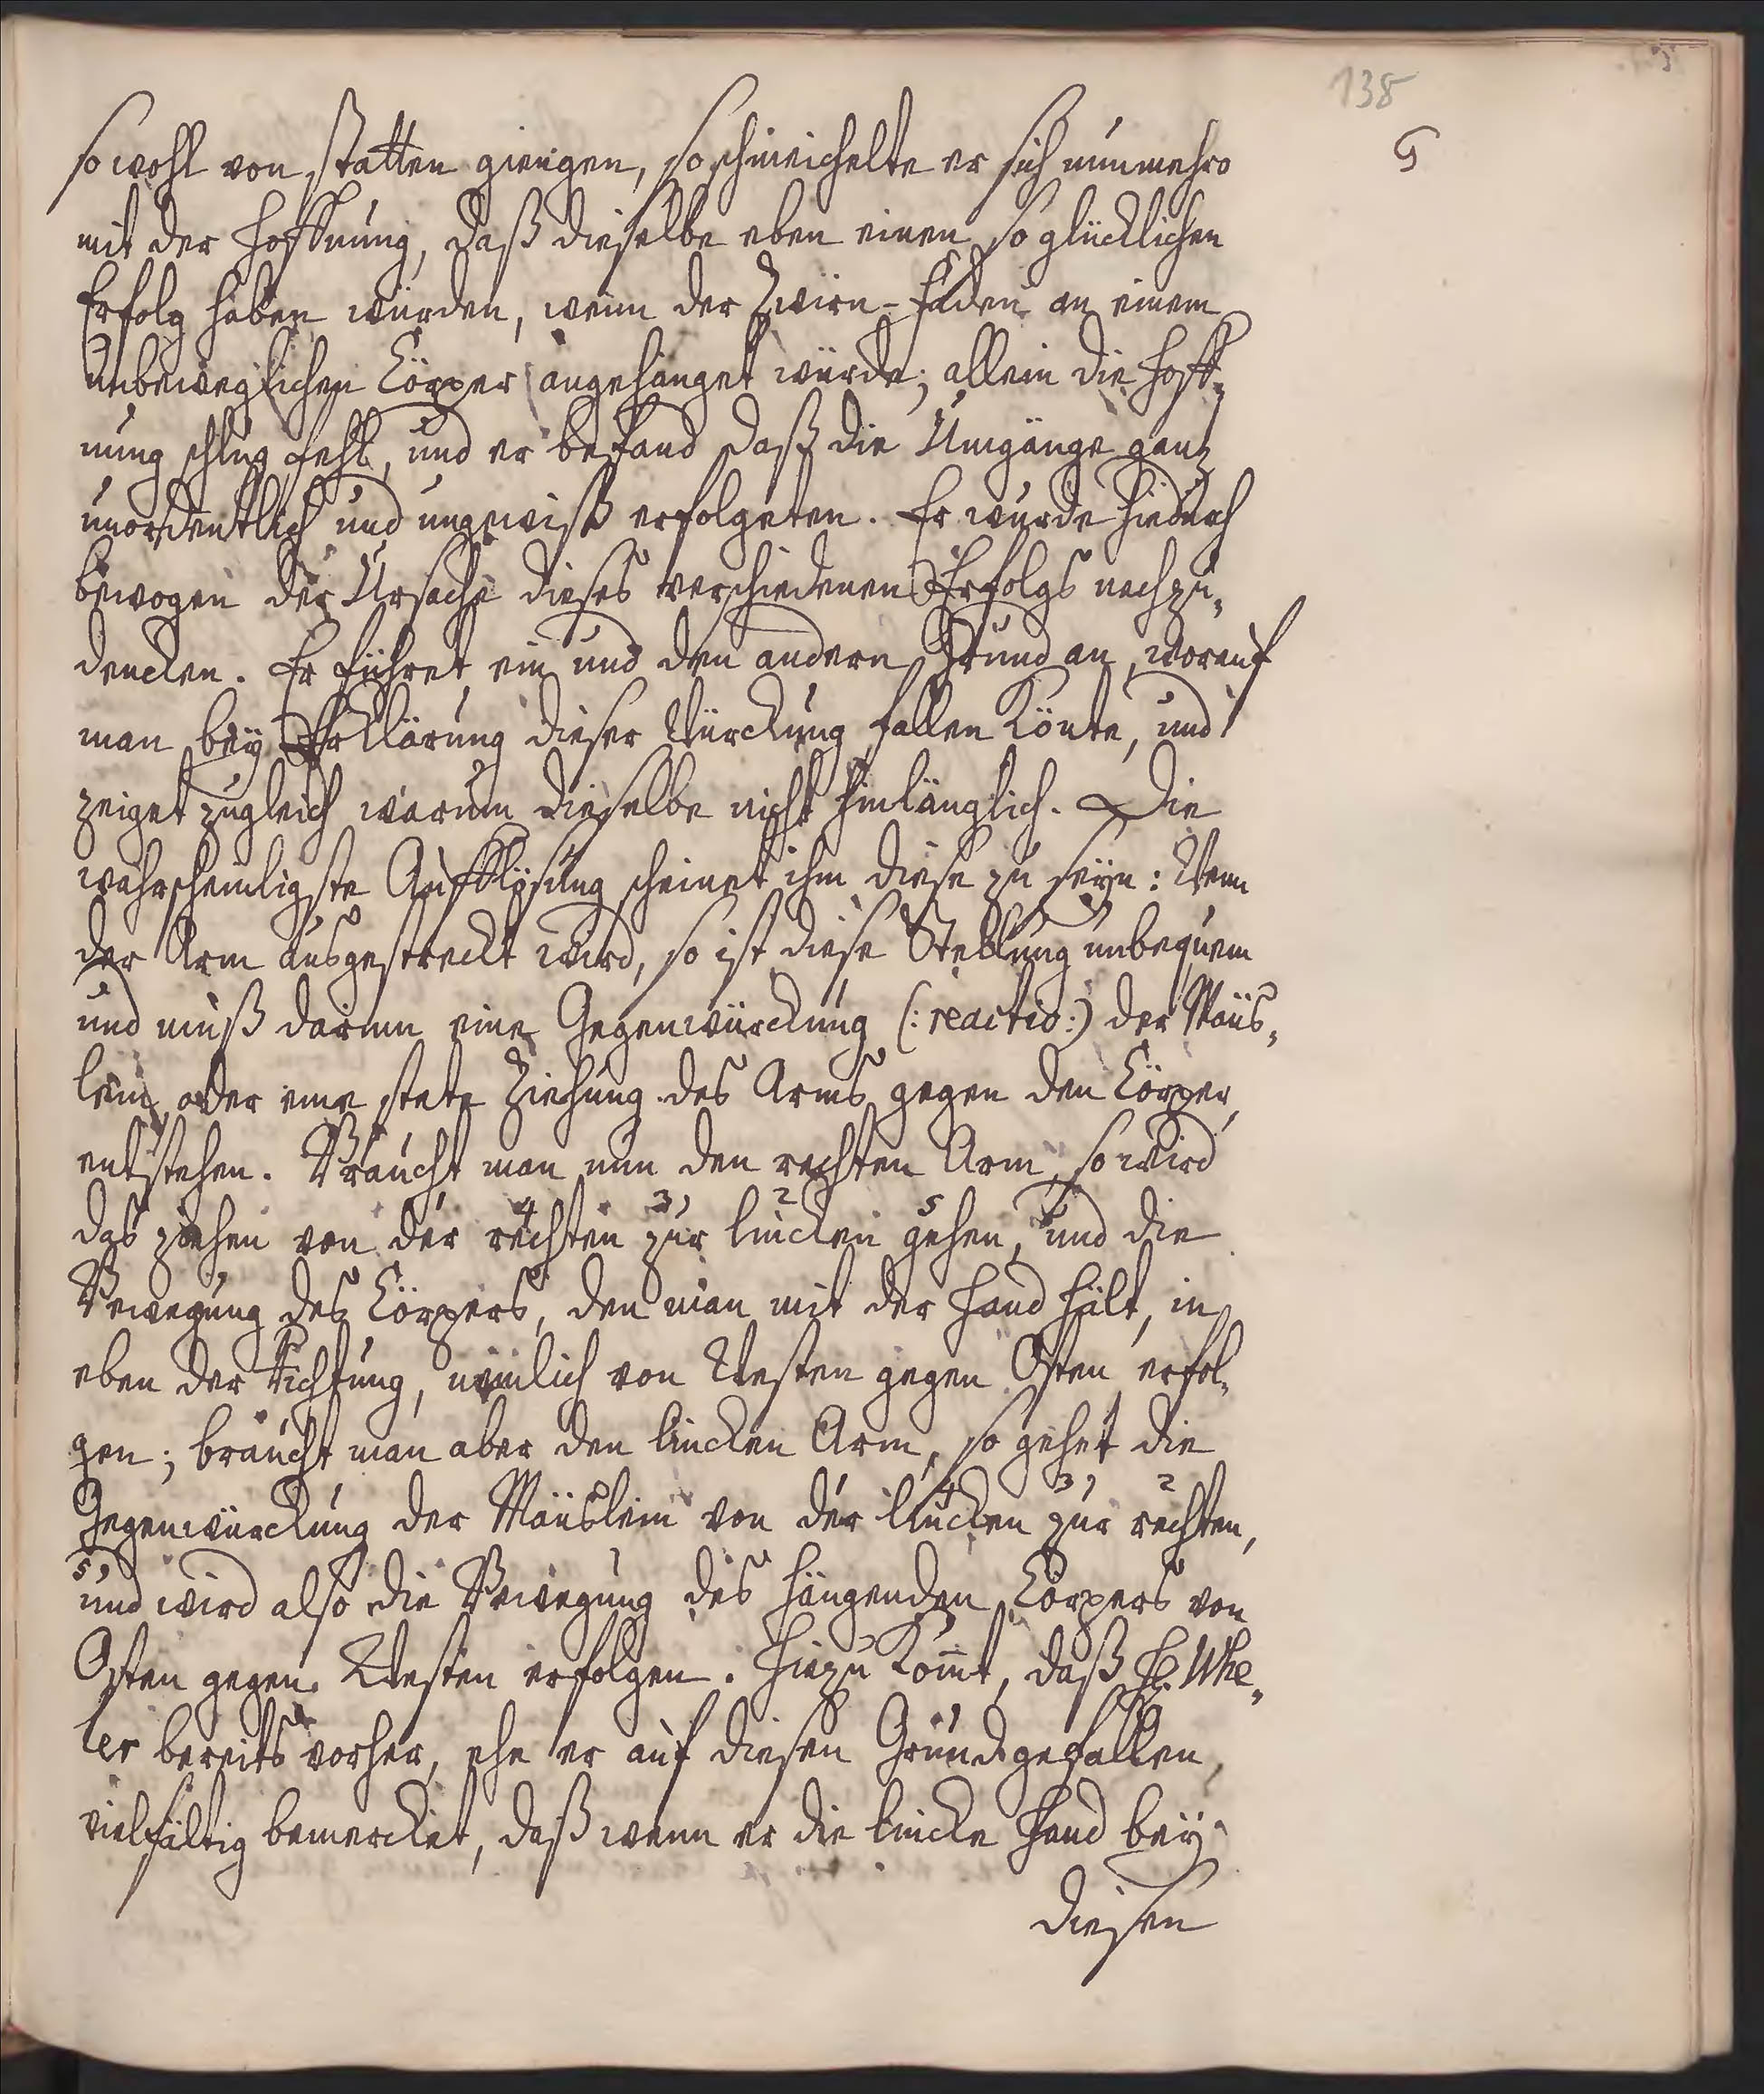 138
G
so wohl von statten giengen, so schmeichelte er sich nunmehro
mit der Hoffnung, daß dieselbe eben einen so glücklichen
Erfolg haben würden, wenn der Zwirn-Faden an einem
unbeweglichen Cörper angehänget würde; allein die Hoff„
nung schlug fehl, und er befand daß die Umgänge ganz
unordentlich und ungewiß erfolgeten. Er wurde hiedurch
bewogen der Ursache dieses verschiedenen Erfolgs nachzu„
dencken. Er führet ein und den andern Grund an, worauf
man bey Erklärung dieser Würckung fallen könte, und
zeiget zugleich warum dieselbe nicht hinlänglich. Die
wahrscheinligste Aufflösung scheinet ihm diese zu seyn: Wenn
der Arm ausgestreckt wird, so ist diese Stellung unbequem
und muß darum eine Gegenwürckung (: reactio :) der Mäus„
lein, oder eine stete Ziehung des Arms gegen den Cörper,
entstehen. Braucht man nun den rechten Arm, so wird
das ziehen von der rechten zur lincken gehen, und die
4 3, 2 5
Bewegung des Cörpers, den man mit der Hand hält, in
eben der Richtung, nemlich von Westen gegen Osten erfol„
gen; braucht man aber den lincken Arm, so gehet die
Gegenwürckung der Mäuslein von der lincken zur rechten,
4 3, 2
5,
und wird also die Bewegung des hängenden Cörpers von
Osten gegen Westen erfolgen. Hiezu kom̄t, daß H. Whe„
ler bereits vorher, ehe er auf diesen Grund gefallen,
vielfältig bemercket, daß wenn er die lincke Hand bey
diesen